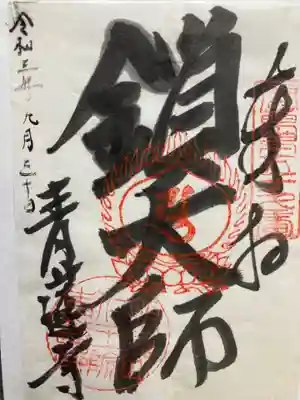 奉拝
鎖大師
令和三年九月三十日
青蓮寺